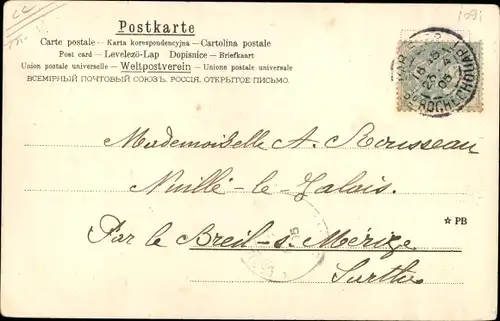 1091
Postkarte
Carte postale — Karta korespondencyjna — Cartolina postale
Post card — Levelező-Lap Dopisnice — Briefkaart
Union postale universelle — Weltpostverein — Unione postale universale
ВСЕМІРНЫЙ ПОЧТОВЫЙ СОЮЗЪ. РОССІЯ. ОТКРЫТОЕ ПИСЬМО.
Mademoiselle A. Rousseau
Nuillé-le-Jalais.
☆ PB
Par le Breil-s-Mérize
Sarthe